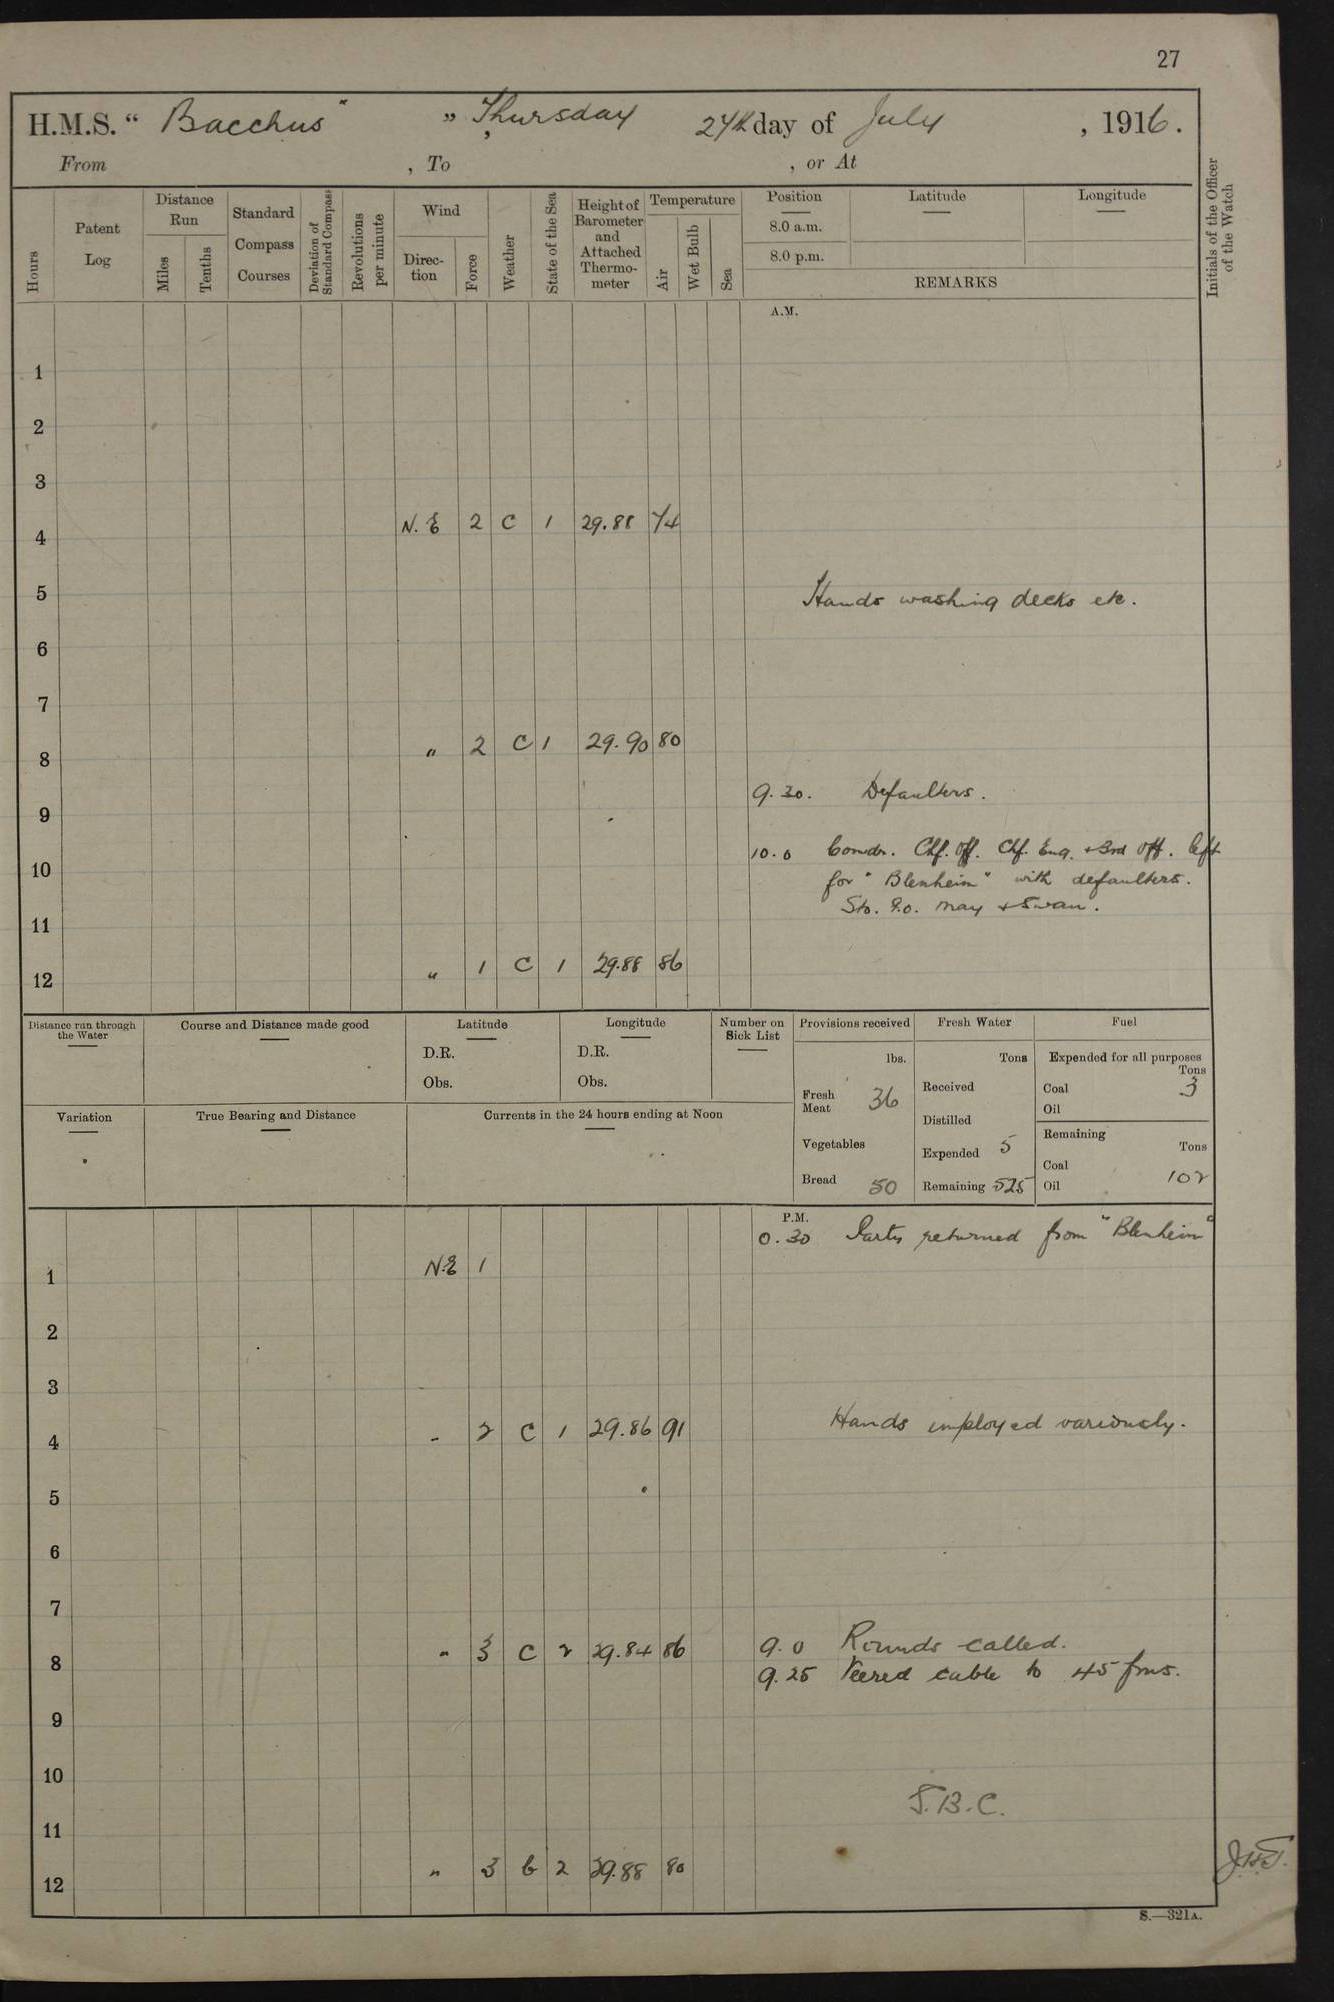 27
H.M.S. “ Bacchus ” „ Thursday 24th day of July , 1916.
From , To , or At
Hours
Patent Log
Distance Run
Miles
Tenths
Standard Compass Courses
Deviation of Standard Compass
Revolutions per minute
Wind
Direc- tion
Force
Weather
State of the Sea
Height of Barometer and Attached Thermo- meter
Temperature
Air
Wet Bulb
Sea
Position
8.0 a.m.
8.0 p.m.
Latitude
Longitude
REMARKS
Initials of the Officer of the Watch
A.M.
1
2
3
4 N.E 2 C 1 29.88 74
5 Hands washing decks etc.
6
7
8 „ 2 C 1 29.90 80
9 9.30. Defaulters.
10 10.0 Comdr. Chf. Off. Chf. Eng. & 3rd Off. left
for "Blenheim" with defaulters.
Sto. P.O. May & Swan.
11
12 „ 1 C 1 29.88 86
Distance run through the Water
Course and Distance made good
Latitude
D.R.
Obs.
Longitude
D.R.
Obs.
Number on Sick List
Provisions received
lbs.
Fresh Meat 36
Vegetables
Bread 50
Fresh Water
Tons
Received
Distilled
Expended 5
Remaining 525
Fuel
Expended for all purposes
Tons
Coal 3
Oil
Remaining
Tons
Coal 102
Oil
Variation
True Bearing and Distance
Currents in the 24 hours ending at Noon
P.M.
0.30 Party returned from "Blenheim"
1 N.E 1
2
3
4 „ 2 C 1 29.86 91 Hands employed variously.
5
6
7
8 „ 3 C 2 29.84 86
9.0 Rounds called.
9.25 Veered cable to 45 fms.
9
10
J.B.C.
11
12 „ 3 b 2 29.88 80
S.—321A.